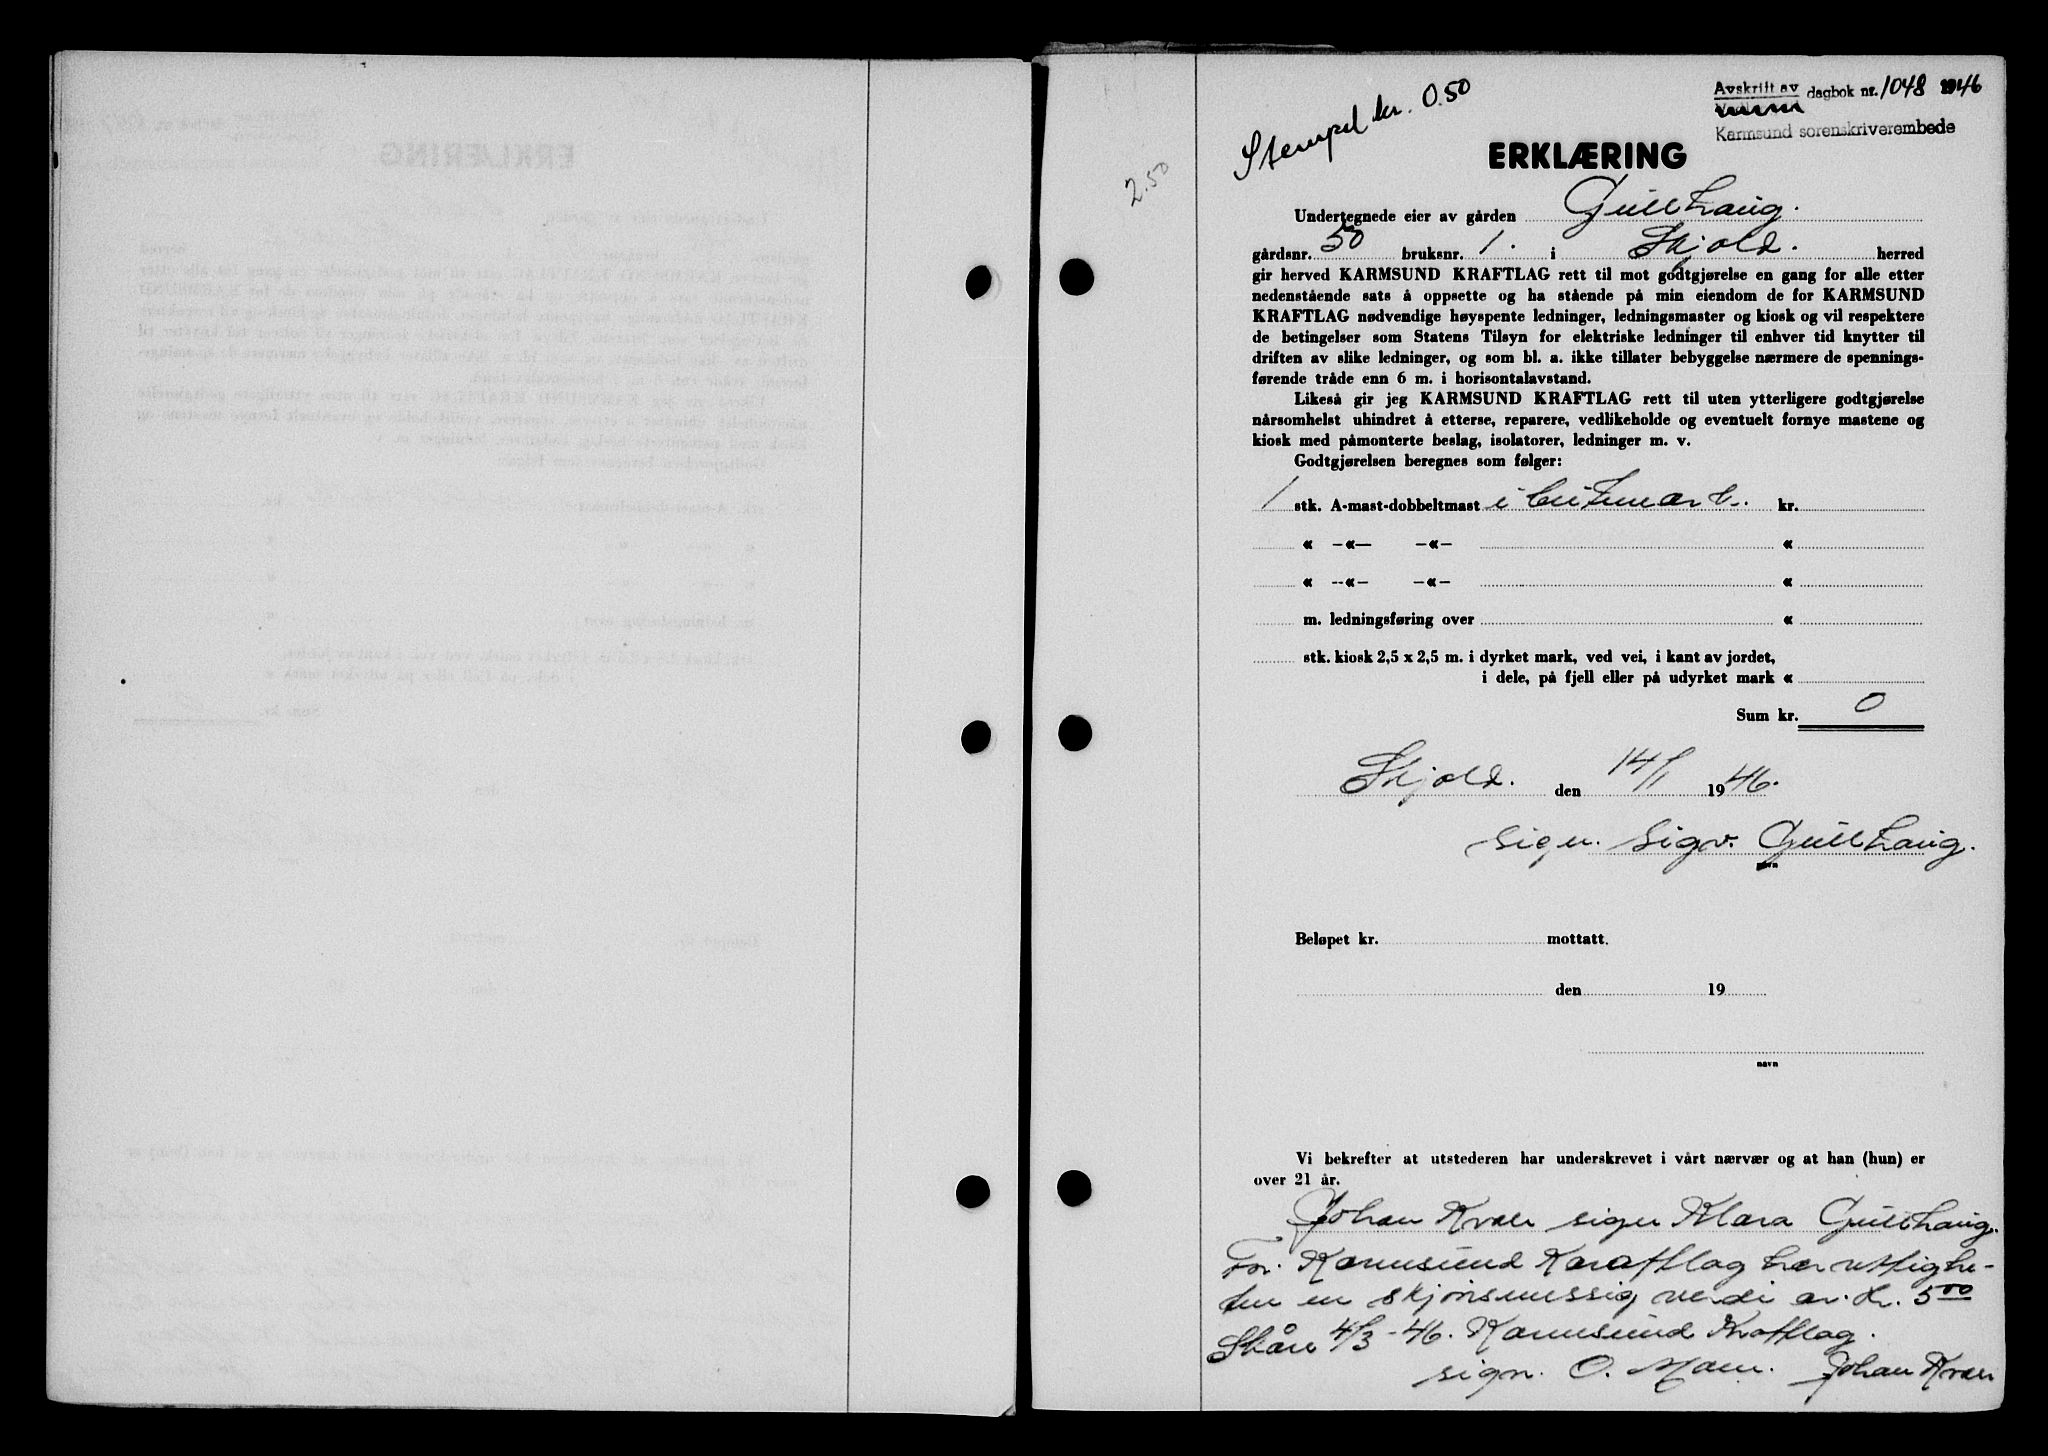 Stempel kr. 0.50
2.50
Avskrift av dagbok nr. 1048 1946
Karmsund sorenskriverembede
ERKLÆRING
Undertegnede eier av gården Gullhaug.
gårdsnr. 50 bruksnr. 1. i Skjold. herred
gir herved KARMSUND KRAFTLAG rett til mot godtgjørelse en gang for alle etter
nedenstående sats å oppsette og ha stående på min eiendom de for KARMSUND
KRAFTLAG nødvendige høyspente ledninger, ledningsmaster og kiosk og vil respektere
de betingelser som Statens Tilsyn for elektriske ledninger til enhver tid knytter til
driften av slike ledninger, og som bl. a. ikke tillater bebyggelse nærmere de spennings-
førende tråde enn 6 m. i horisontalavstand.
Likeså gir jeg KARMSUND KRAFTLAG rett til uten ytterligere godtgjørelse
nårsomhelst uhindret å etterse, reparere, vedlikeholde og eventuelt fornye mastene og
kiosk med påmonterte beslag, isolatorer, ledninger m. v.
Godtgjørelsen beregnes som følger:
1 stk. A-mast-dobbeltmast i utmark. kr.
« –«— –«– «
« --«– –«– «
m. ledningsføring over «
stk. kiosk 2,5 x 2,5 m. i dyrket mark, ved vei, i kant av jordet,
i dele, på fjell eller på udyrket mark «
Sum kr. 0
Skjold. den 14/1 1946.
sign. Sigv. Gullhaug.
navn
Beløpet kr. mottatt.
den 19
navn
Vi bekrefter at utstederen har underskrevet i vårt nærvær og at han (hun) er
over 21 år.
Johan Kvale sign Klara Gullhaug.
For. Karmsund Kraftlag har rettighe-
ten en skjønsmessig verdi av. kr. 500
Skåre 4/3-46. Karmsund Kraftlag.
sign. O. Johan Kvale